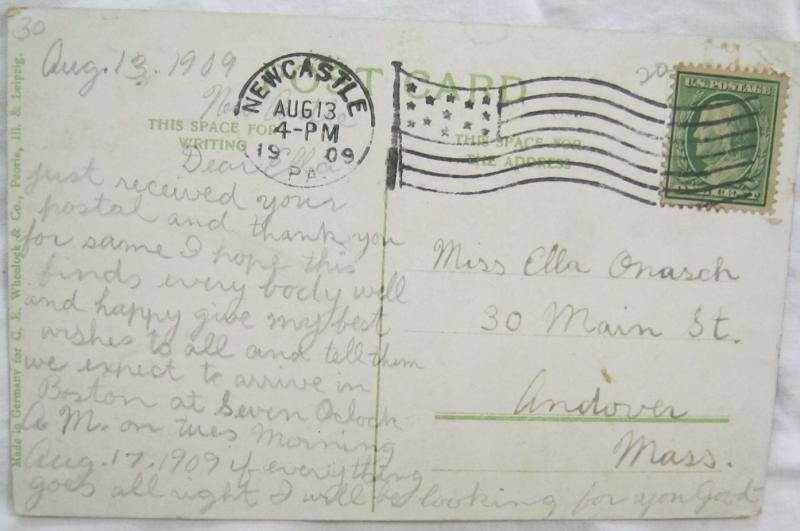 30
Aug. 13. 1909
New Castle
POST CARD
NEWCASTLE
AUG 13
4-PM
1909
PA
20
U.S. POSTAGE
THIS SPACE FOR
WRITING
THIS SPACE FOR
THE ADDRESS
Dear Ella
just received your
postal and thank you
for same I hope this
finds every body well
and happy give my best
wishes to all and tell them
we expect to arrive in
Boston at Seven Oclock
A. M. on Tues Morning
Aug. 17. 1909 if everything
goes all right I will be looking for you Good
Miss Ella Onasch
30 Main St.
Andover
Mass.
Made in Germany for C. E. Wheelock & Co., Peoria, Ill. & Leipzig.